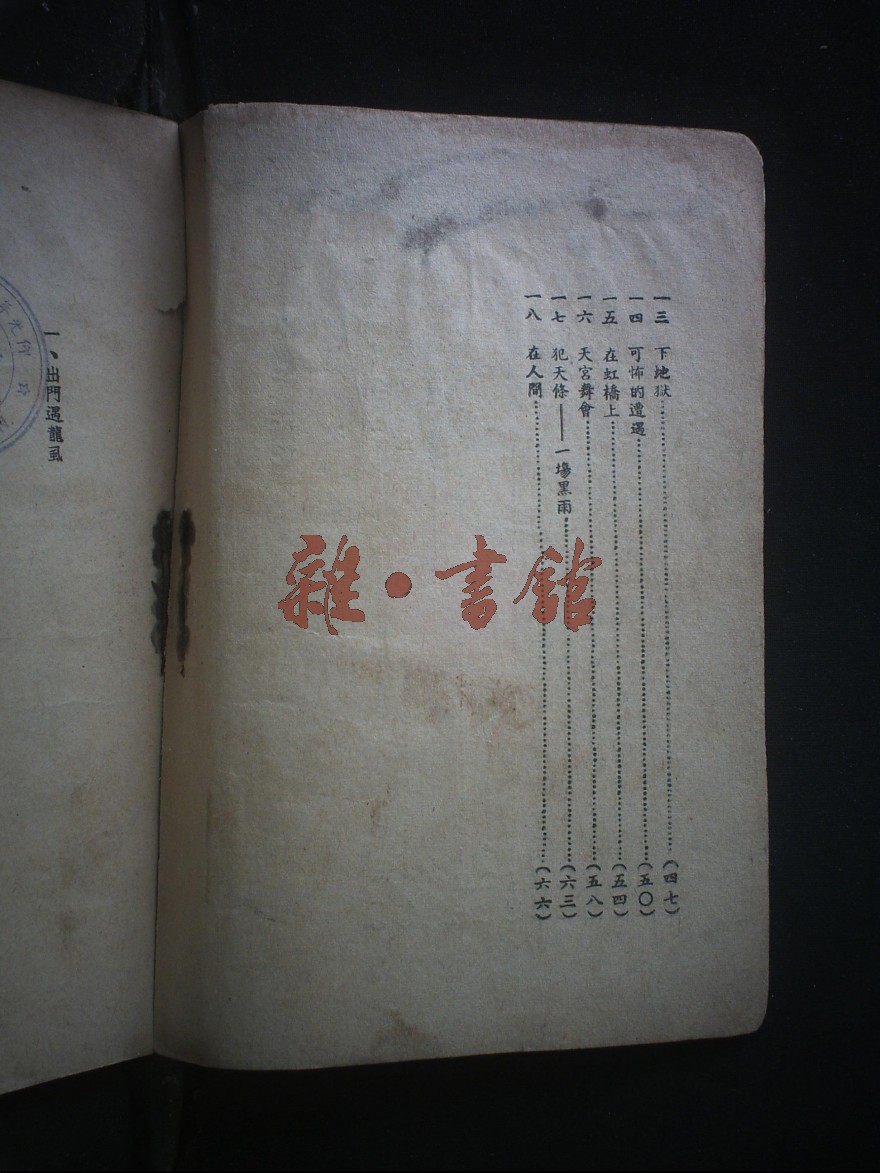 一三　下地獄……(四七)
一四　可怖的遭遇……(五〇)
一五　在虹橋上……(五四)
一六　天宮舞會……(五八)
一七　犯天條——一場黑雨……(六三)
一八　在人間……(六六)
雜·書館
一、出門遇龍虱